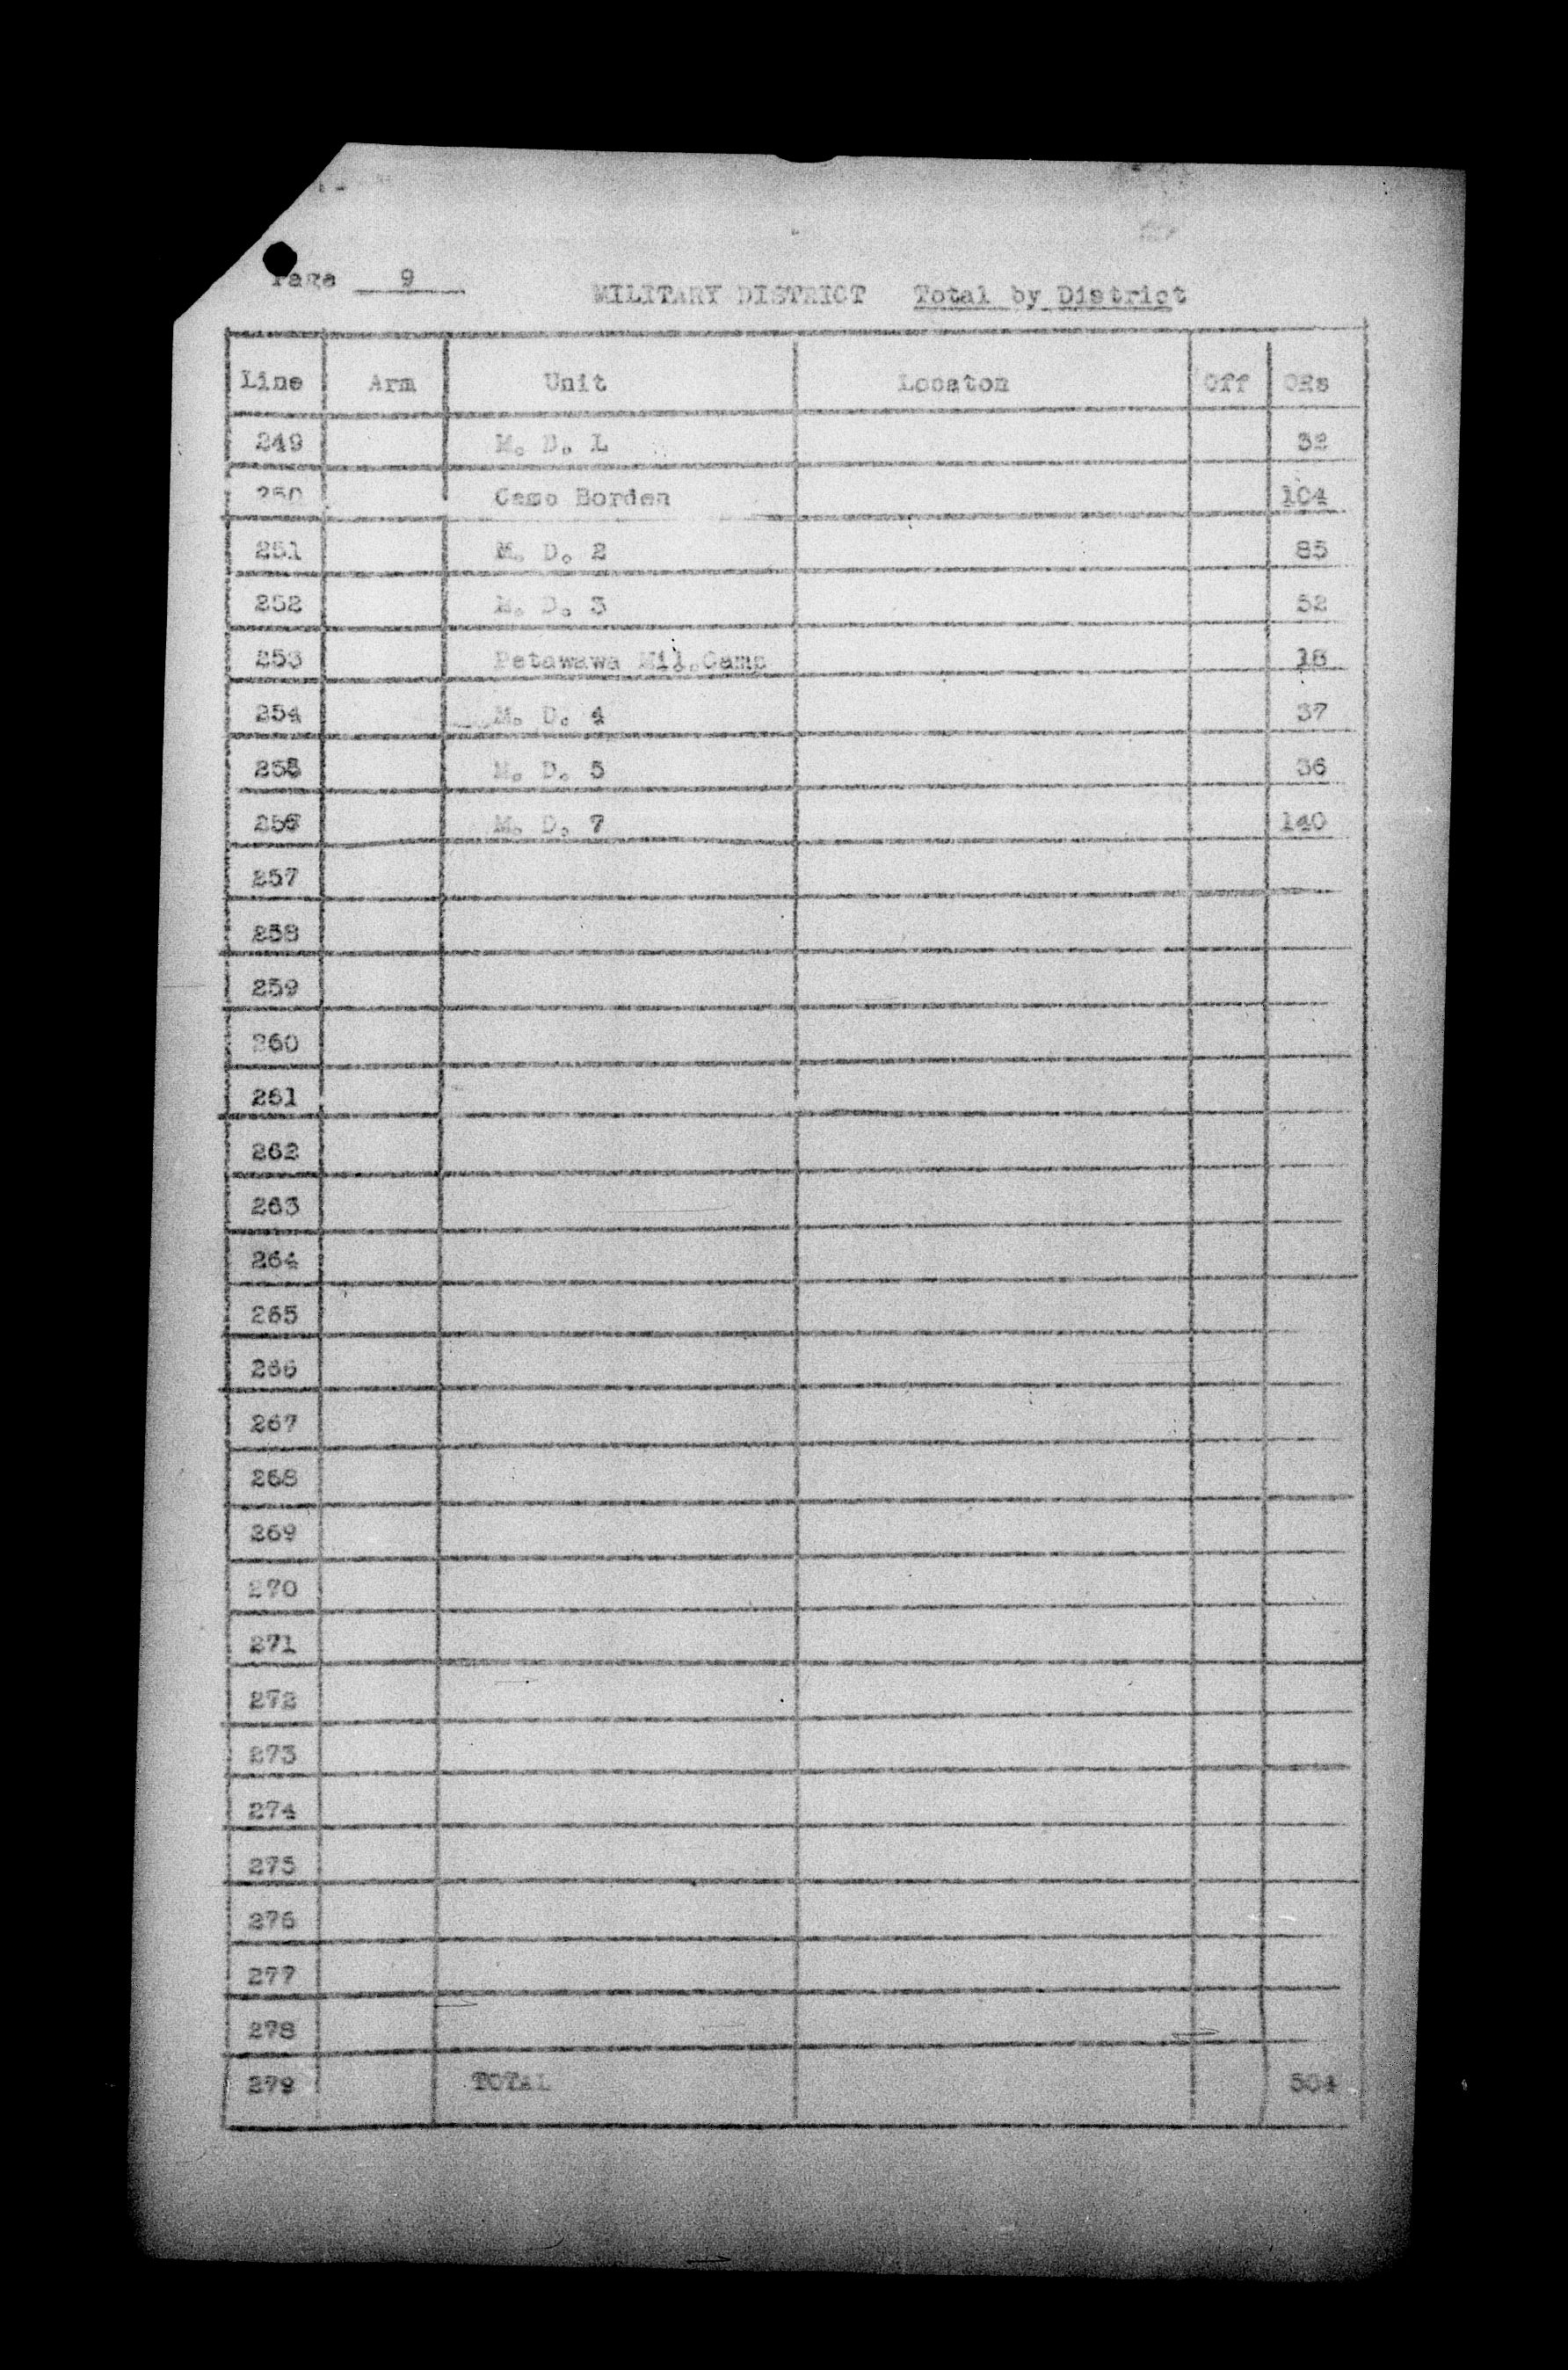 Page 9
MILITARY DISTRICT Total by District
Line Arm Unit Locaton Off ORs
249 M. D. L 32
250 Camp Borden 104
251 M. D. 2 85
252 M. D. 3 52
253 Petawawa Mil.Camp 18
254 M. D. 4 37
255 M. D. 5 36
256 M. D. 7 140
257
258
259
260
261
262
263
264
265
266
267
268
269
270
271
272
273
274
275
276
277
278
279 TOTAL 504